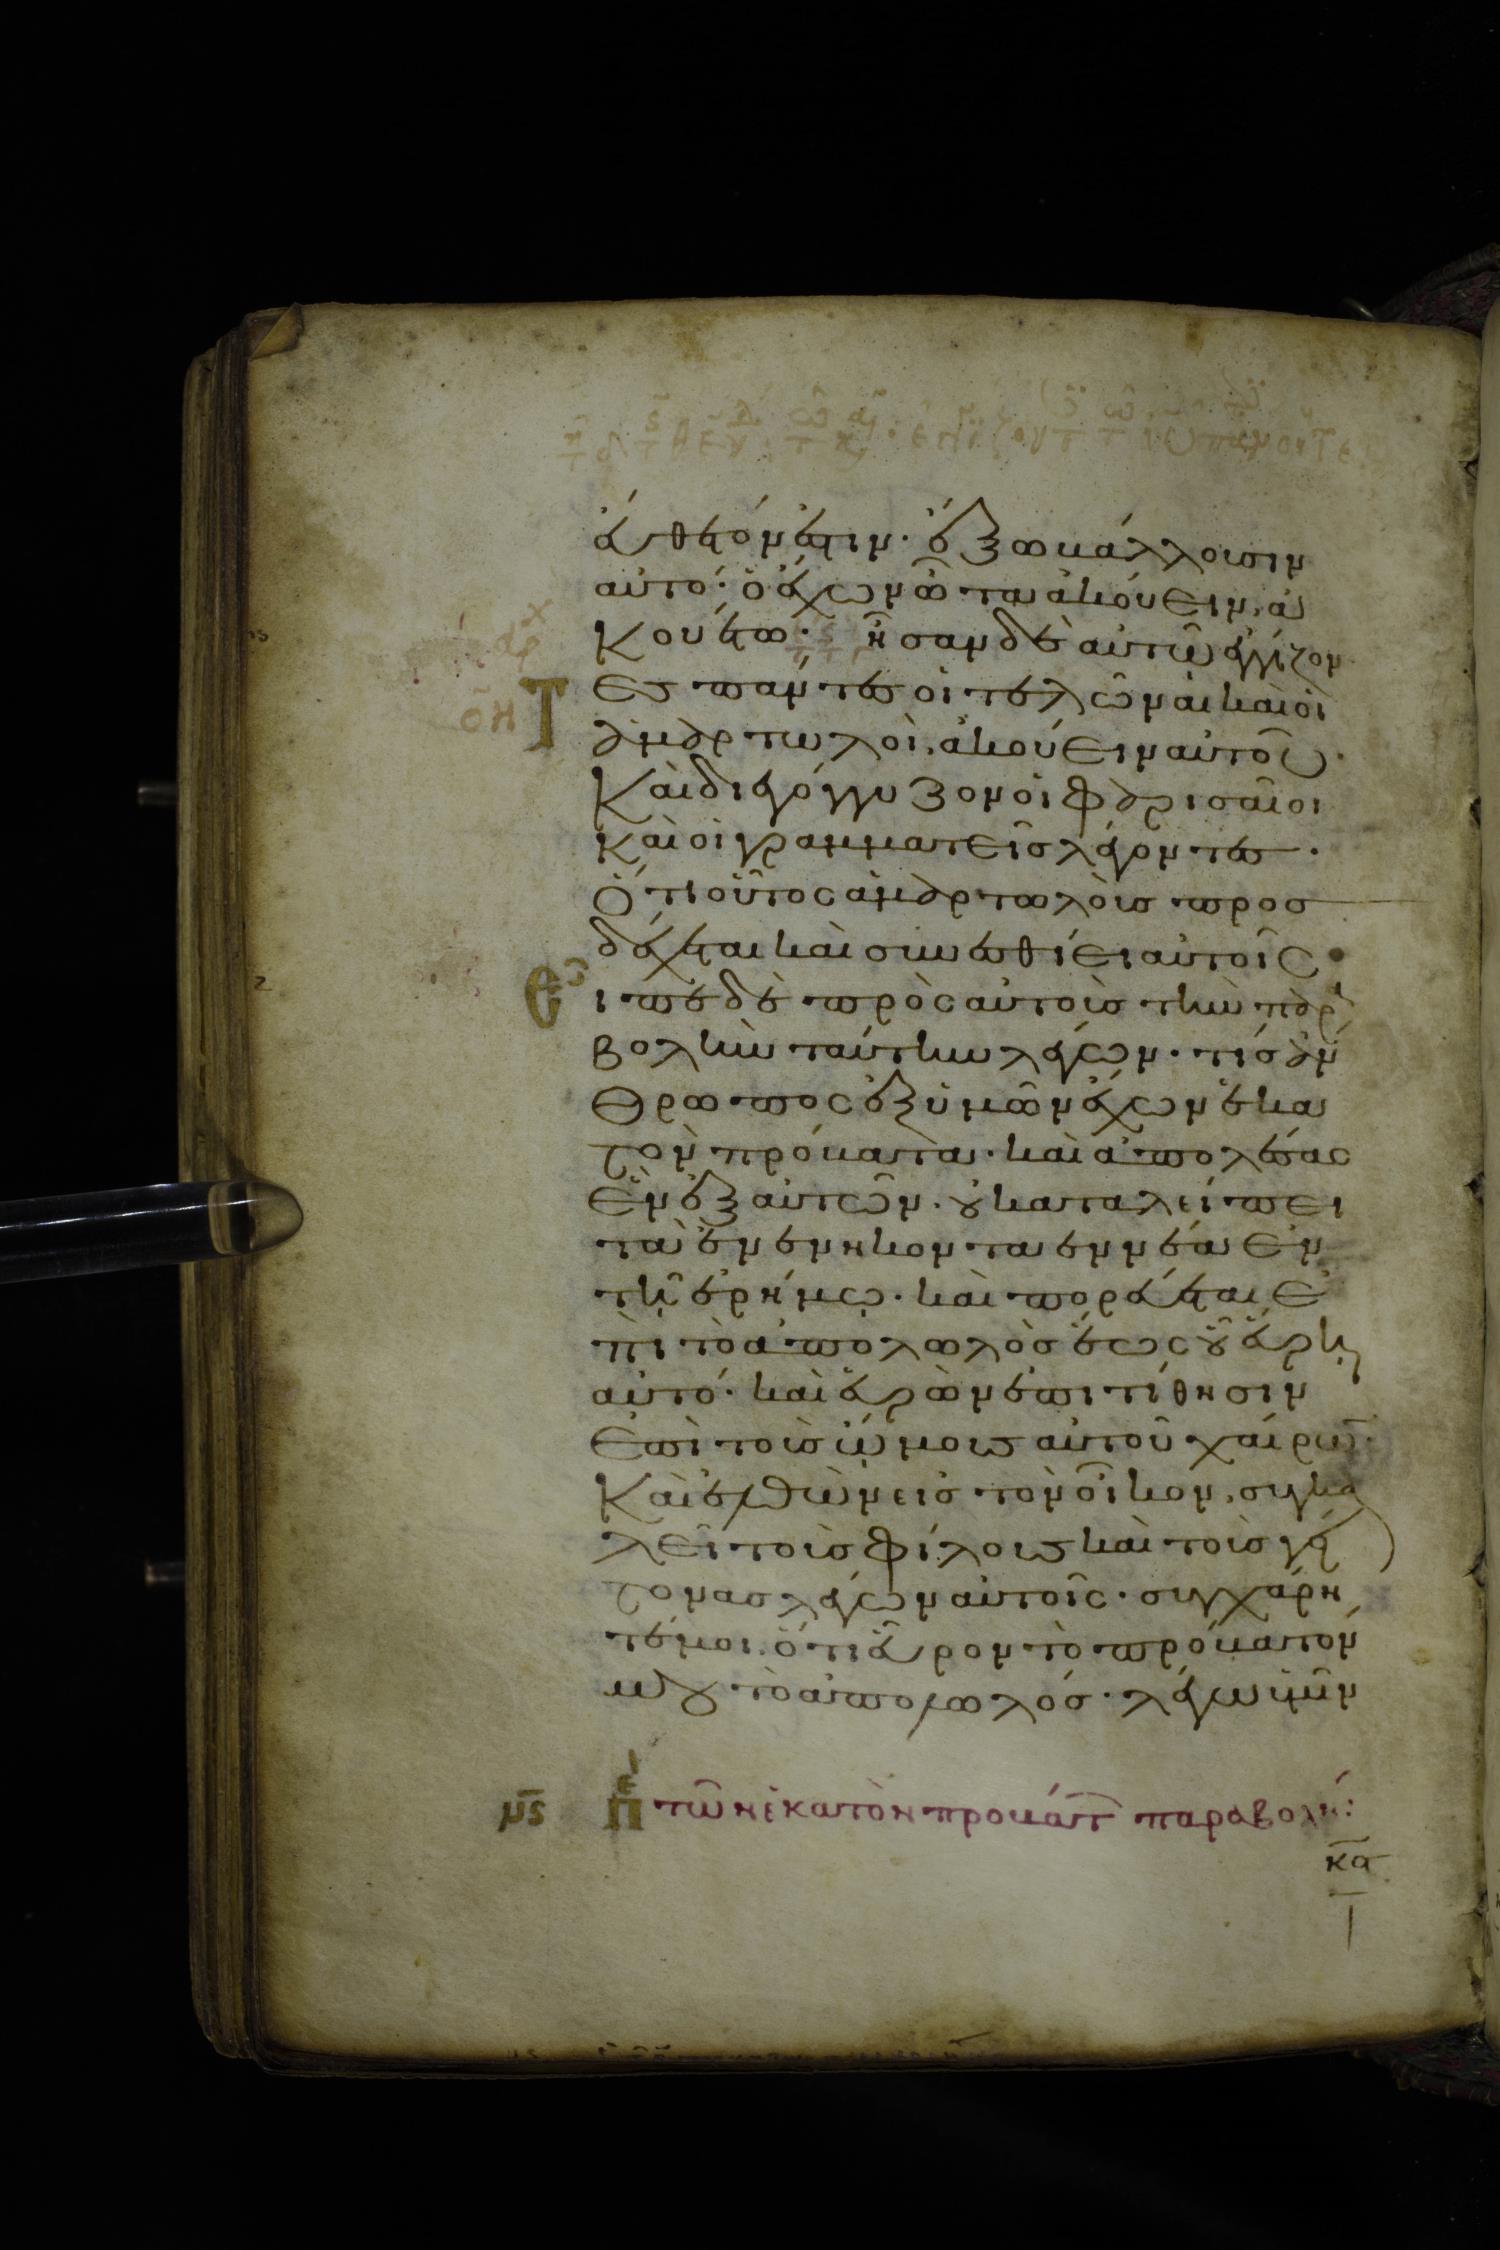 εὔθετόν ἐστιν· ἔξω βάλλουσιν
αὐτό· ὁ ἔχων ὦτα ἀκούειν, ἀ
κουέτω· ἦσαν δὲ αὐτῶ ἐγγίζον
οη τες πάντες οἱ τελῶναι καὶ οἱ
ἁμαρτωλοὶ, ἀκούειν αὐτοῦ·
Καὶ διεγόγγυζον οἱ φαρισαῖοι
καὶ οἱ γραμματεῖς λέγοντες·
Ὅτι οὗτος ἁμαρτωλοὺς προσ
δέχεται καὶ συνεσθίει αὐτοῖς·
Εἶπε δὲ πρὸς αὐτοὺς τὴν παρα
βολὴν ταύτην λέγων· τίς ἄν
θρωπος ἐξ ὑμῶν ἔχων ἑκα
τὸν πρόβατα· καὶ ἀπολέσας
ἓν ἐξ αὐτῶν· οὐ καταλείπει
τὰ ἐνενηκονταεννέα ἐν
τῇ ἐρήμῳ· καὶ πορεύεται ἐ
πὶ τὸ ἀπολωλὸς ἕως οὗ εὕρῃ
αὐτό· καὶ εὑρὼν ἐπιτίθησιν
ἐπὶ τοὺς ὤμους αὐτοῦ χαίρων·
Καὶ ἐλθὼν εἰς τὸν οἶκον, συγκα
λεῖ τοὺς φίλους καὶ τοὺς γεί
τονας λέγων αὐτοῖς· συγχάρη
τέ μοι, ὅτι εὗρον τὸ πρόβατόν
μου τὸ ἀπολωλός· λέγω ὑμῖν
μς πε τῶν ἑκατὸν προβάτ παραβολή:
κα